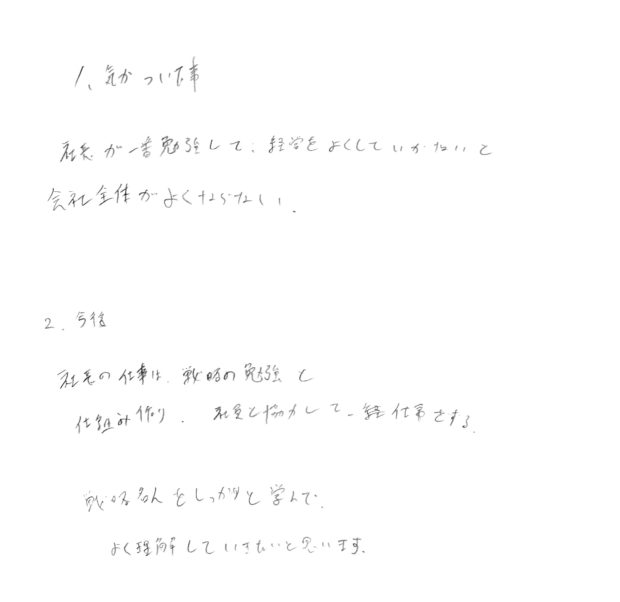 1、気がついた事
社長が一番勉強して、経営をよくしていかないと
会社全体がよくならない.
2. 今後
社長の仕事は、戦略の勉強と
仕組み作り. 社員と協力して一緒仕事をする.
戦略名人をしっかりと学んで.
よく理解していきたいと思います.